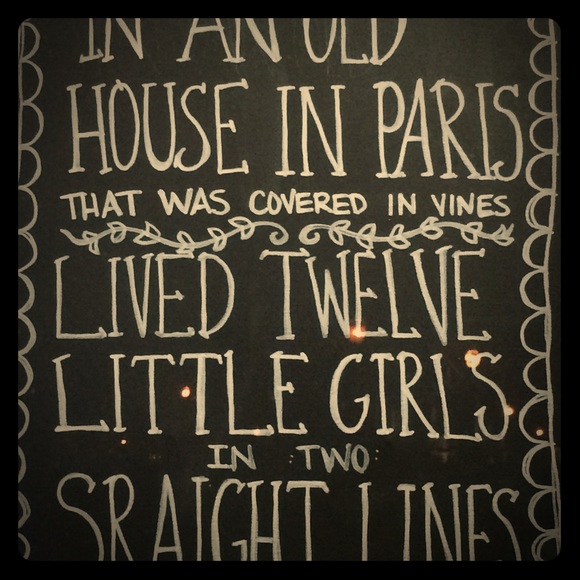 IN AN OLD
HOUSE IN PARIS
THAT WAS COVERED IN VINES
LIVED TWELVE
LITTLE GIRLS
IN TWO
SRAIGHT LINES